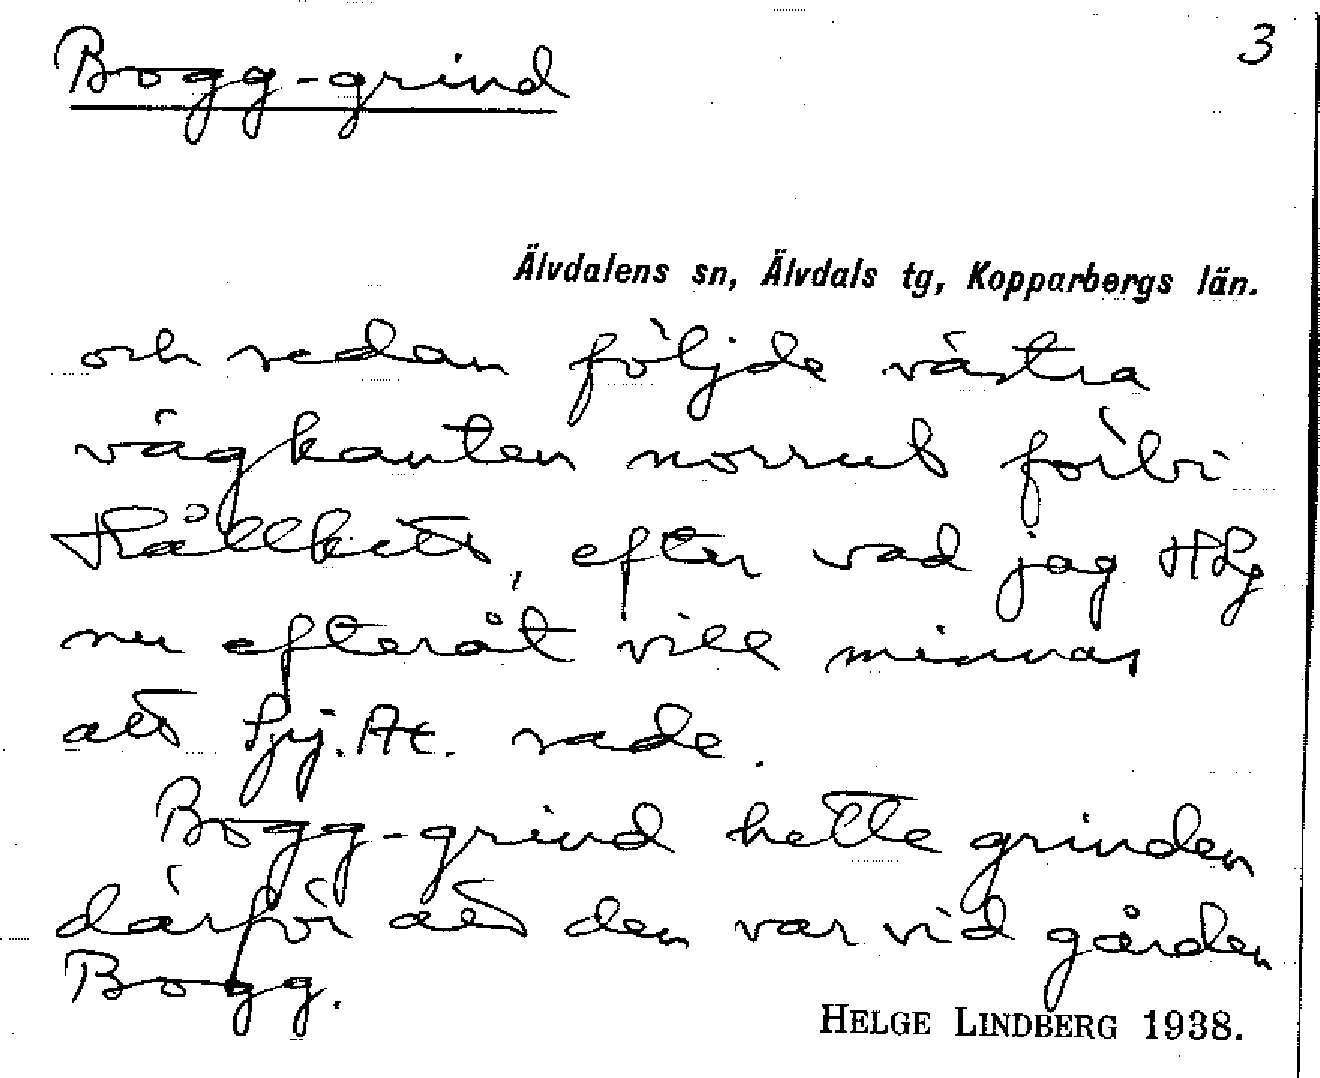 Bogg-grind
3
Älvdalens sn, Älvdals tg, Kopparbergs län.
och sedan följde västra
vägkanten norrut förbi
efter vad jag HLg
nu efteråt vill minnas
att sade.
Bogg-grind hette grinden
därför att den var vid gården
Bogg.
HELGE LINDBERG 1938.